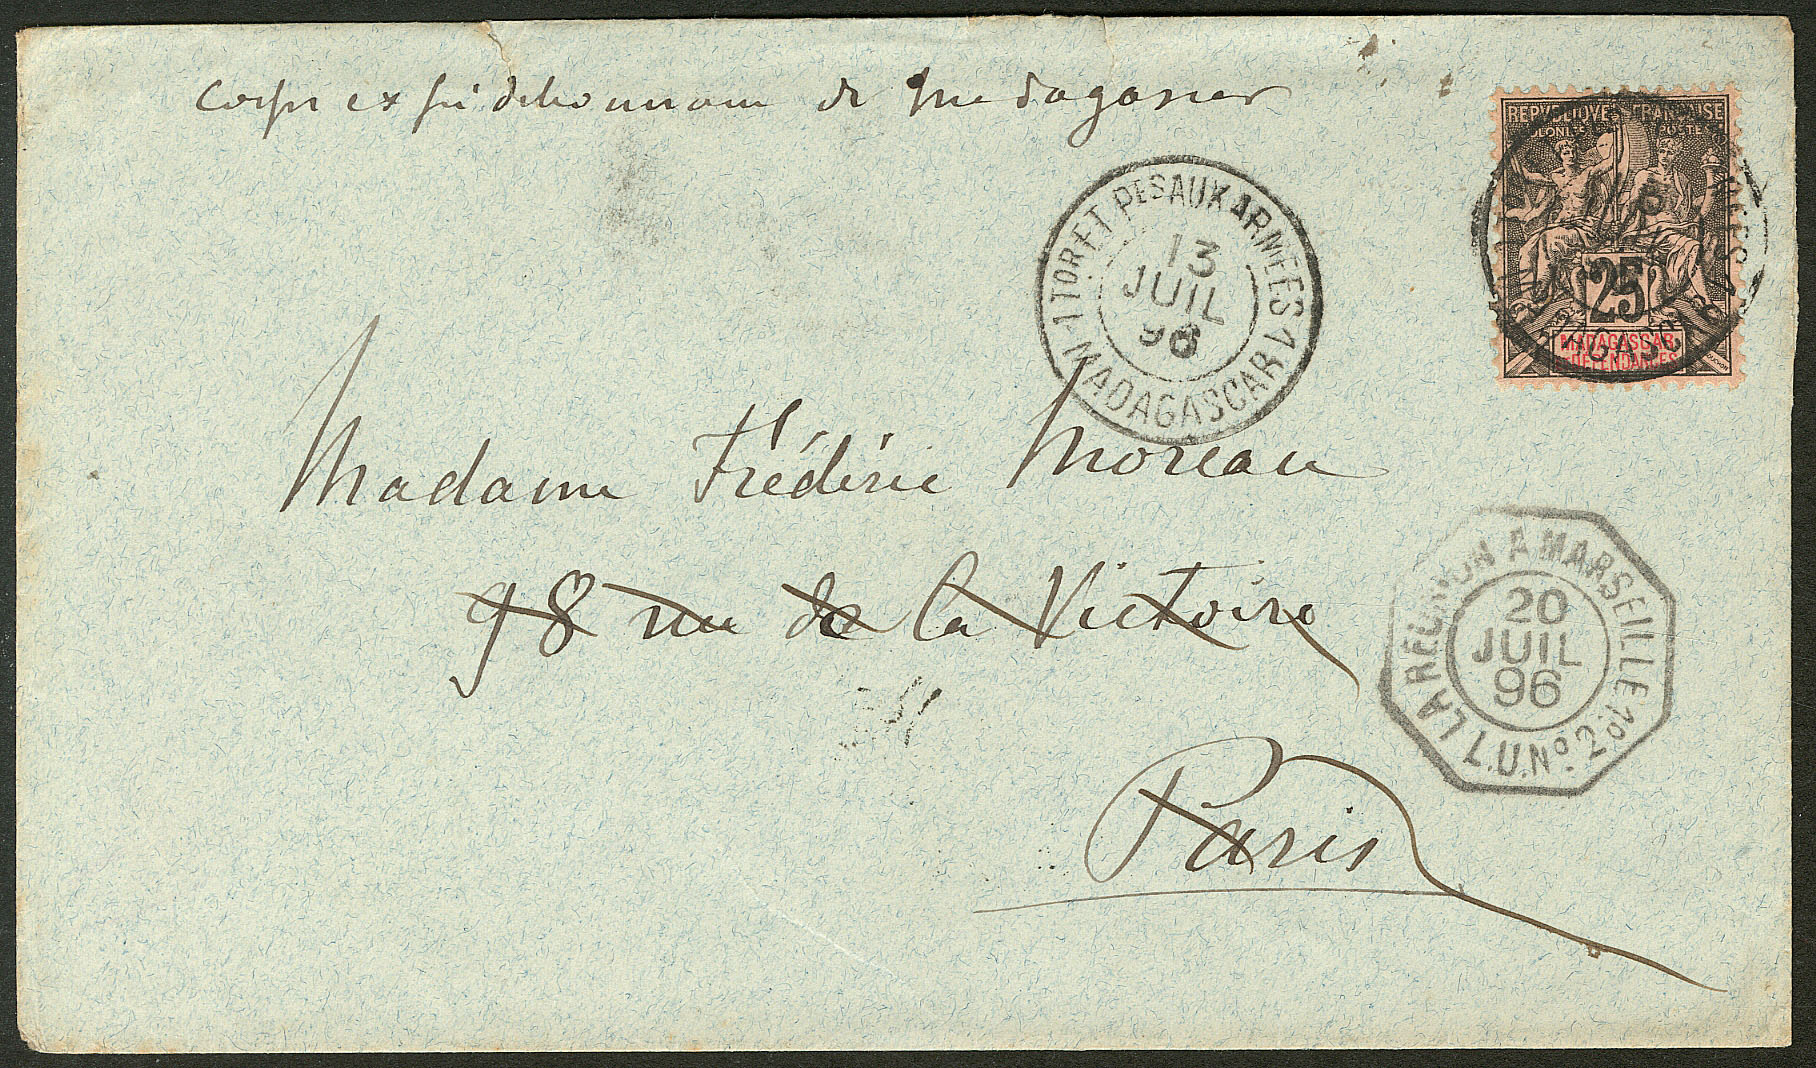 Corps expéditionnaire de Madagascar
REPVBLIQVE FRANÇAISE
COLONIES POSTES
25
MADAGASCAR
ET DÉPENDANCES
TOR ET PES AUX ARMÉES 1
13
JUIL
96
MADAGASCAR
Madame Frédéric Moreau
98 rue de la Victoire
Paris
LA REUNION A MARSEILLE
20
JUIL
96
L.U.No.2